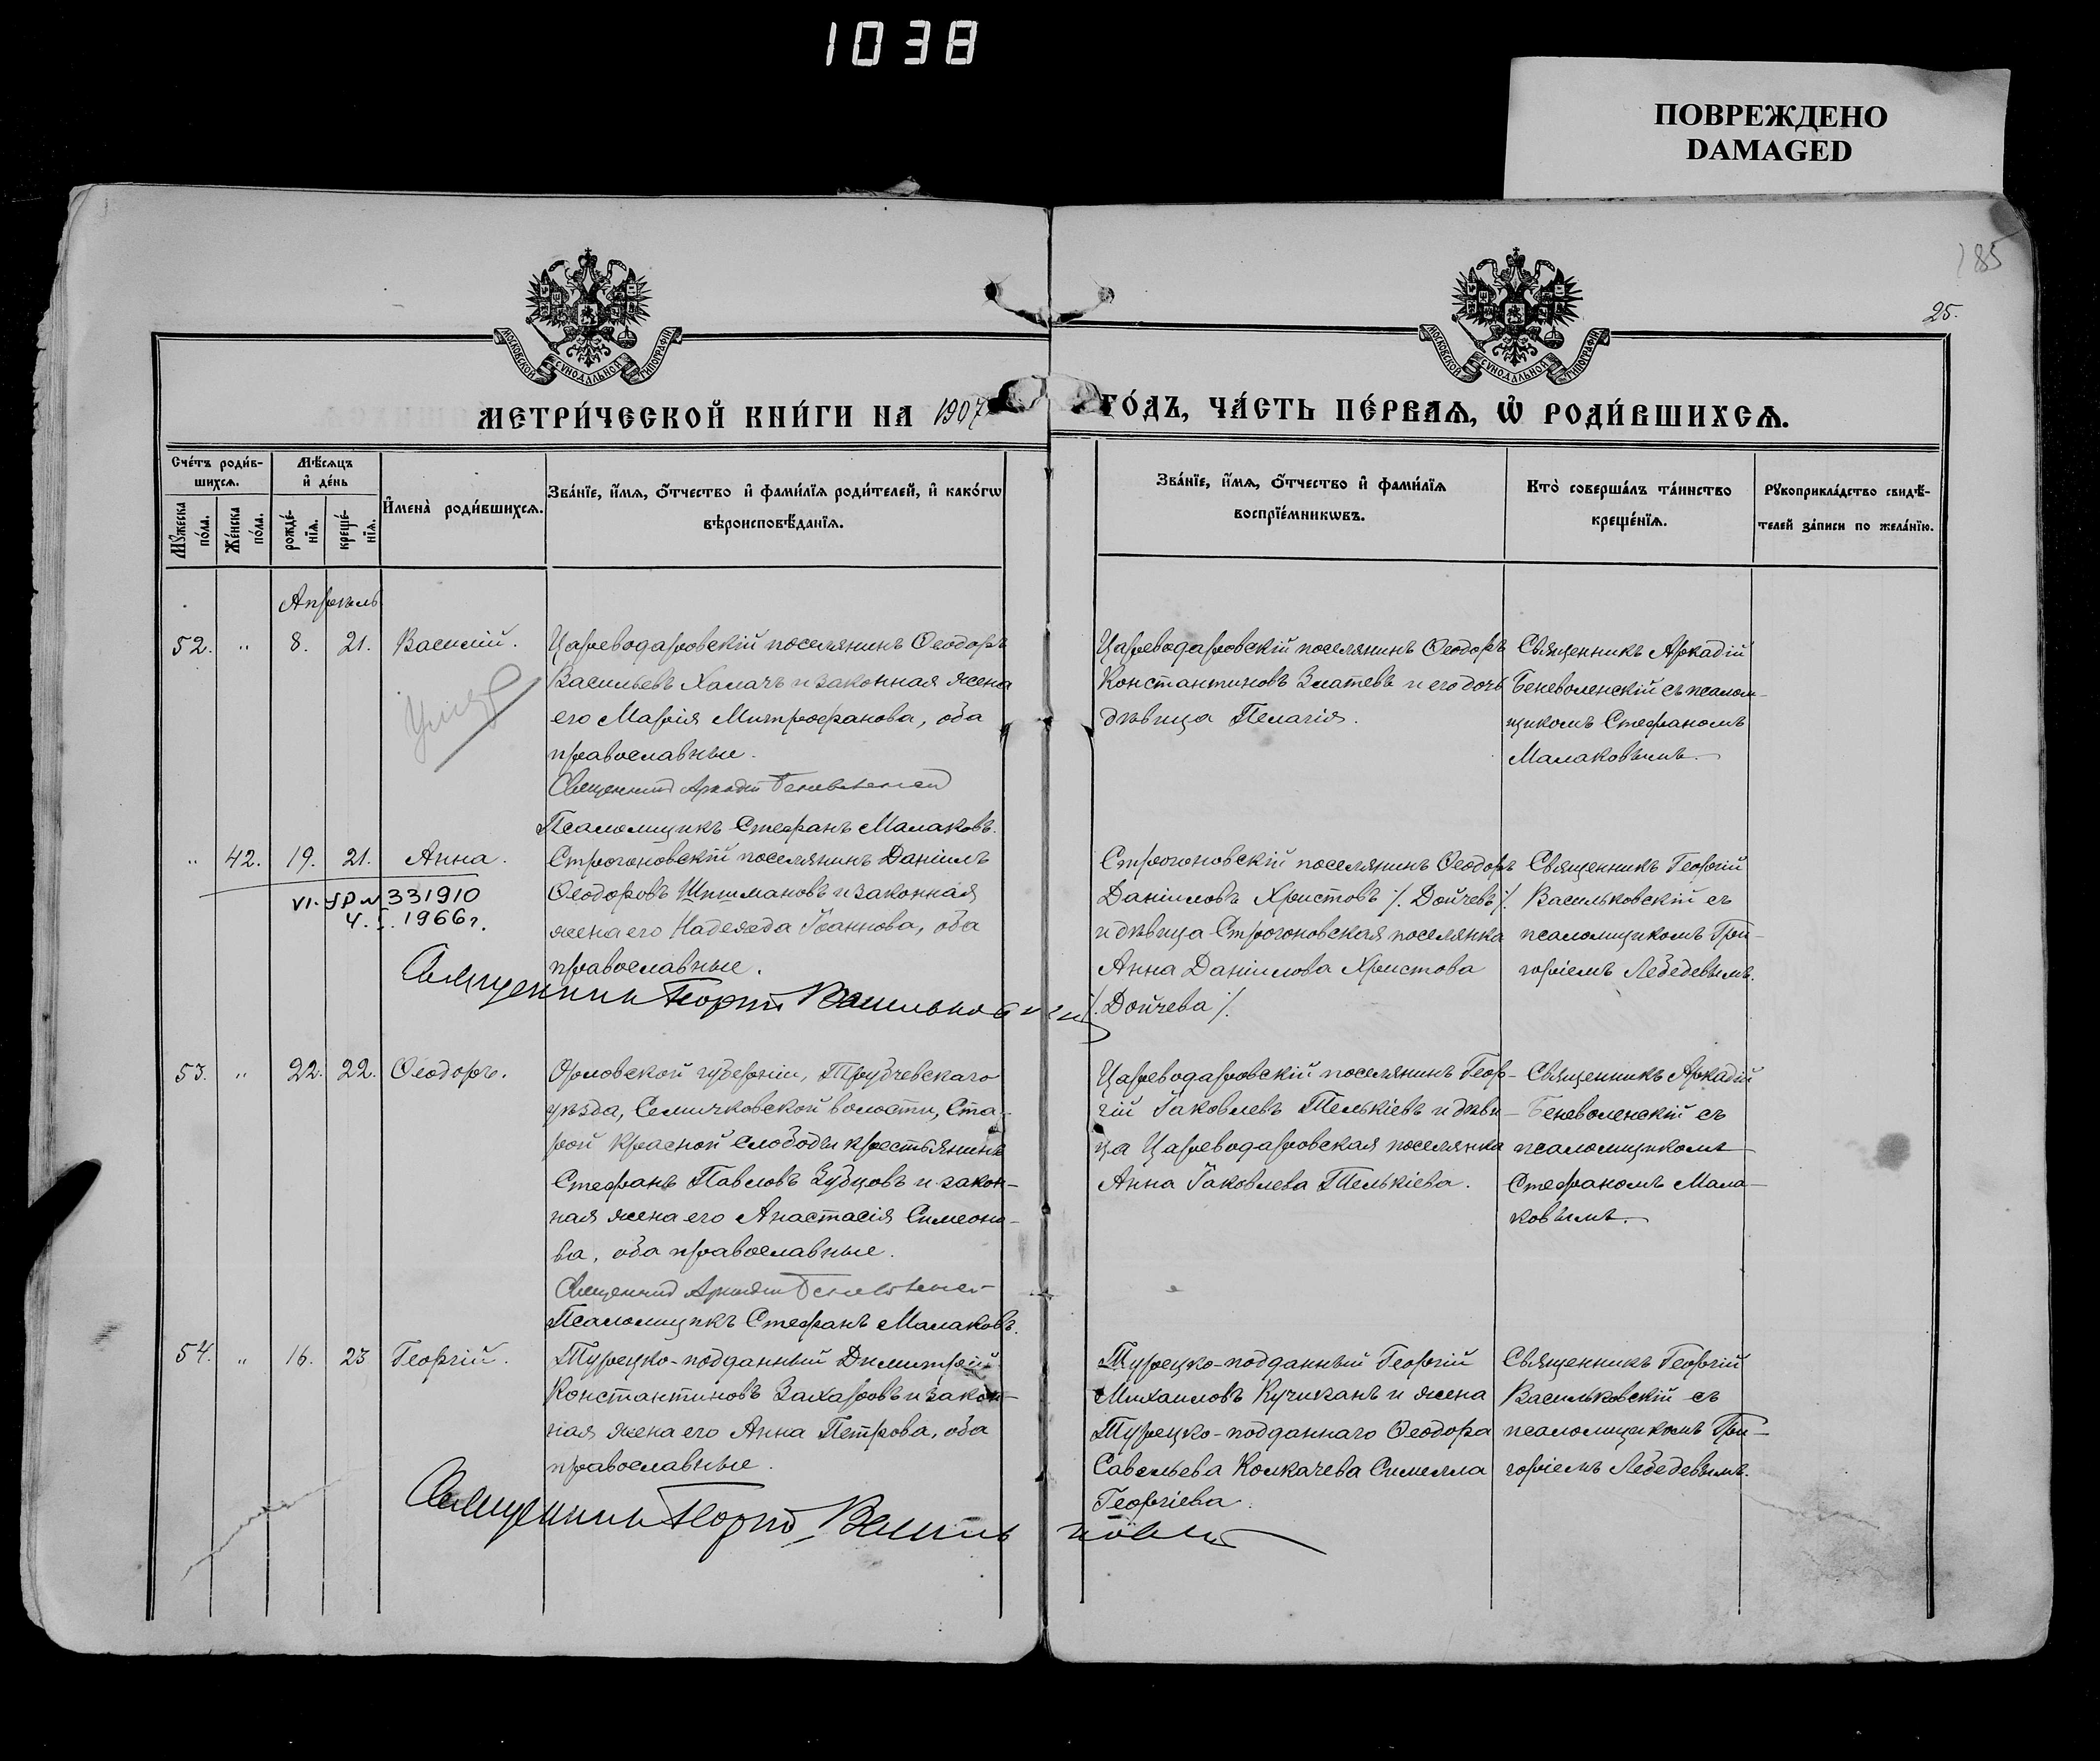 1038
ПОВРЕЖДЕНО
DAMAGED
185
25.
МОСКОВСКОЙ СѴНОДАЛЬНОЙ ТИПОГРАФІИ
МОСКОВСКОЙ СѴНОДАЛЬНОЙ ТИПОГРАФІИ
МЕТРИ́ЧЕСКОЙ КНИ́ГИ НА 1907
ГО́ДЪ, ЧА́СТЬ ПЕ́РВАѦ, Ѡ҆ РОДИ́ВШИХСѦ.
Сче́тъ роди́в-
шихсѧ.
Мꙋ́жеска
по́ла.
Же́нска
по́ла.
Мѣ́сѧцъ
и҆ де́нь
рожде́-
нїѧ.
креще́-
нїѧ.
И҆мена̀ роди́вшихсѧ.
Зва́нїе, и҆́мѧ, ѻ҆́тчество и҆ фами́лїѧ роди́телей, и҆ како́гѡ
вѣроисповѣ́данїѧ.
Зва́нїе, и҆́мѧ, ѻ҆́тчество и҆ фами́лїѧ
воспрїе́мникѡвъ.
Кто̀ соверша́лъ та́инство
креще́нїѧ.
Рꙋкоприкла́дство свидѣ́-
телей за́писи по жела́нїю.
Апрѣль
52. „ 8. 21. Василій.
Цареводаровскій поселянинъ Ѳеодоръ
Васильевъ Халачъ и законная жена
его Марія Митрофанова, оба
православные.
Священникъ Аркадій Беневоленскій
Псаломщикъ Стефанъ Малаковъ.
Цареводаровскій поселянинъ Ѳеодоръ
Константиновъ Златевъ и его дочь
дѣвица Пелагія.
Священникъ Аркадій
Беневоленскій съ псалом-
щикомъ Стефаномъ
Малаковымъ.
„ 42. 19. 21. Анна.
331910
4. I. 1966г.
Строгоновскій поселянинъ Даніилъ
Ѳеодоровъ Шишмановъ и законная
жена его Надежда Іоаннова, оба
православные.
Священникъ Георгій Васильковскій
Строгоновскій поселянинъ Ѳеодоръ
Даніиловъ Христовъ /. Дойчевъ /.
и дѣвица Строгоновская поселянка
Анна Даніилова Христова
/. Дойчева /.
Священникъ Георгій
Васильковскій съ
псаломщикомъ Гри-
горіемъ Лебедевымъ.
53. „ 22. 22. Ѳеодоръ.
Орловской губерніи, Трубчевскаго
уѣзда, Селичковской волости, Ста-
рой Красной Слободы крестьянинъ
Стефанъ Павловъ Зубцовъ и закон-
ная жена его Анастасія Симеоно-
ва, оба православные.
Священникъ Аркадій Беневоленскій
Псаломщикъ Стефанъ Малаковъ.
Цареводаровскій поселянинъ Геор-
гій Іаковлевъ Телькіевъ и дѣви-
ца Цареводаровская поселянка
Анна Іаковлева Телькіева.
Священникъ Аркадій
Беневоленскій съ
псаломщикомъ
Стефаномъ Мала-
ковымъ.
54. „ 16. 23 Георгій.
Турецко-подданный Димитрій
Константиновъ Захаровъ и закон-
ная жена его Анна Петрова, оба
православные.
Священникъ Георгій Васильковскій
Турецко-подданный Георгій
Михаиловъ Кучиканъ и жена
Турецко-подданнаго Ѳеодора
Савельева Колкачева Симелла
Георгіева.
Священникъ Георгій
Васильковскій съ
псаломщикомъ Гри-
горіемъ Лебедевымъ.